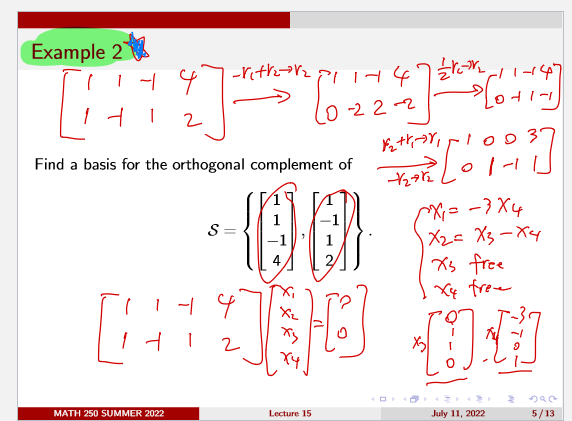 Example 2
[1 1 -1 4; 1 -1 1 2] -r1+r2→r2 [1 1 -1 4; 0 -2 2 -2] ½r2→r2 [1 1 -1 4; 0 -1 1 -1]
r2+r1→r1 -r2→r2 [1 0 0 3; 0 1 -1 1]
Find a basis for the orthogonal complement of
S = { [1 1 -1 4], [1 -1 1 2] }.
x1 = -3x4
x2 = x3 - x4
x3 free
x4 free
[1 1 -1 4; 1 -1 1 2] [x1 x2 x3 x4] = [0 0]
x3 [0 1 1 0] x4 [-3 -1 0 1]
MATH 250 SUMMER 2022 Lecture 15 July 11, 2022 5 / 13